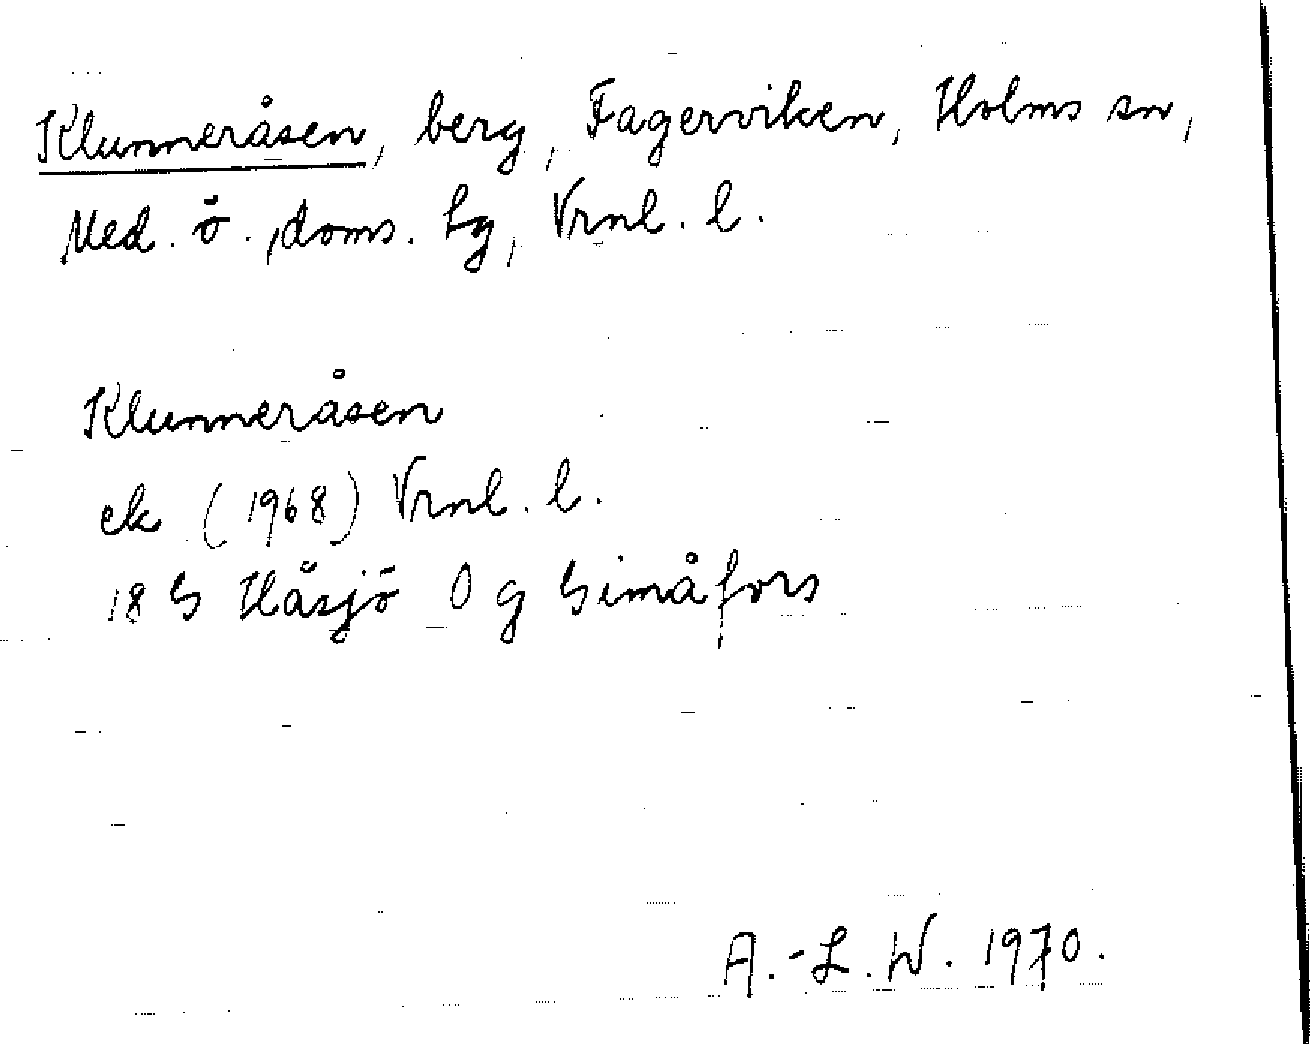 Klumneråsen, berg, Fagerviken, Holms sn,
Med. ö., doms. hg, Vrnl. l.
Klumneråsen
ek (1968) Vrnl. l.
18 G Håsjö 0 g Gimåfors
A.-L. W. 1970.